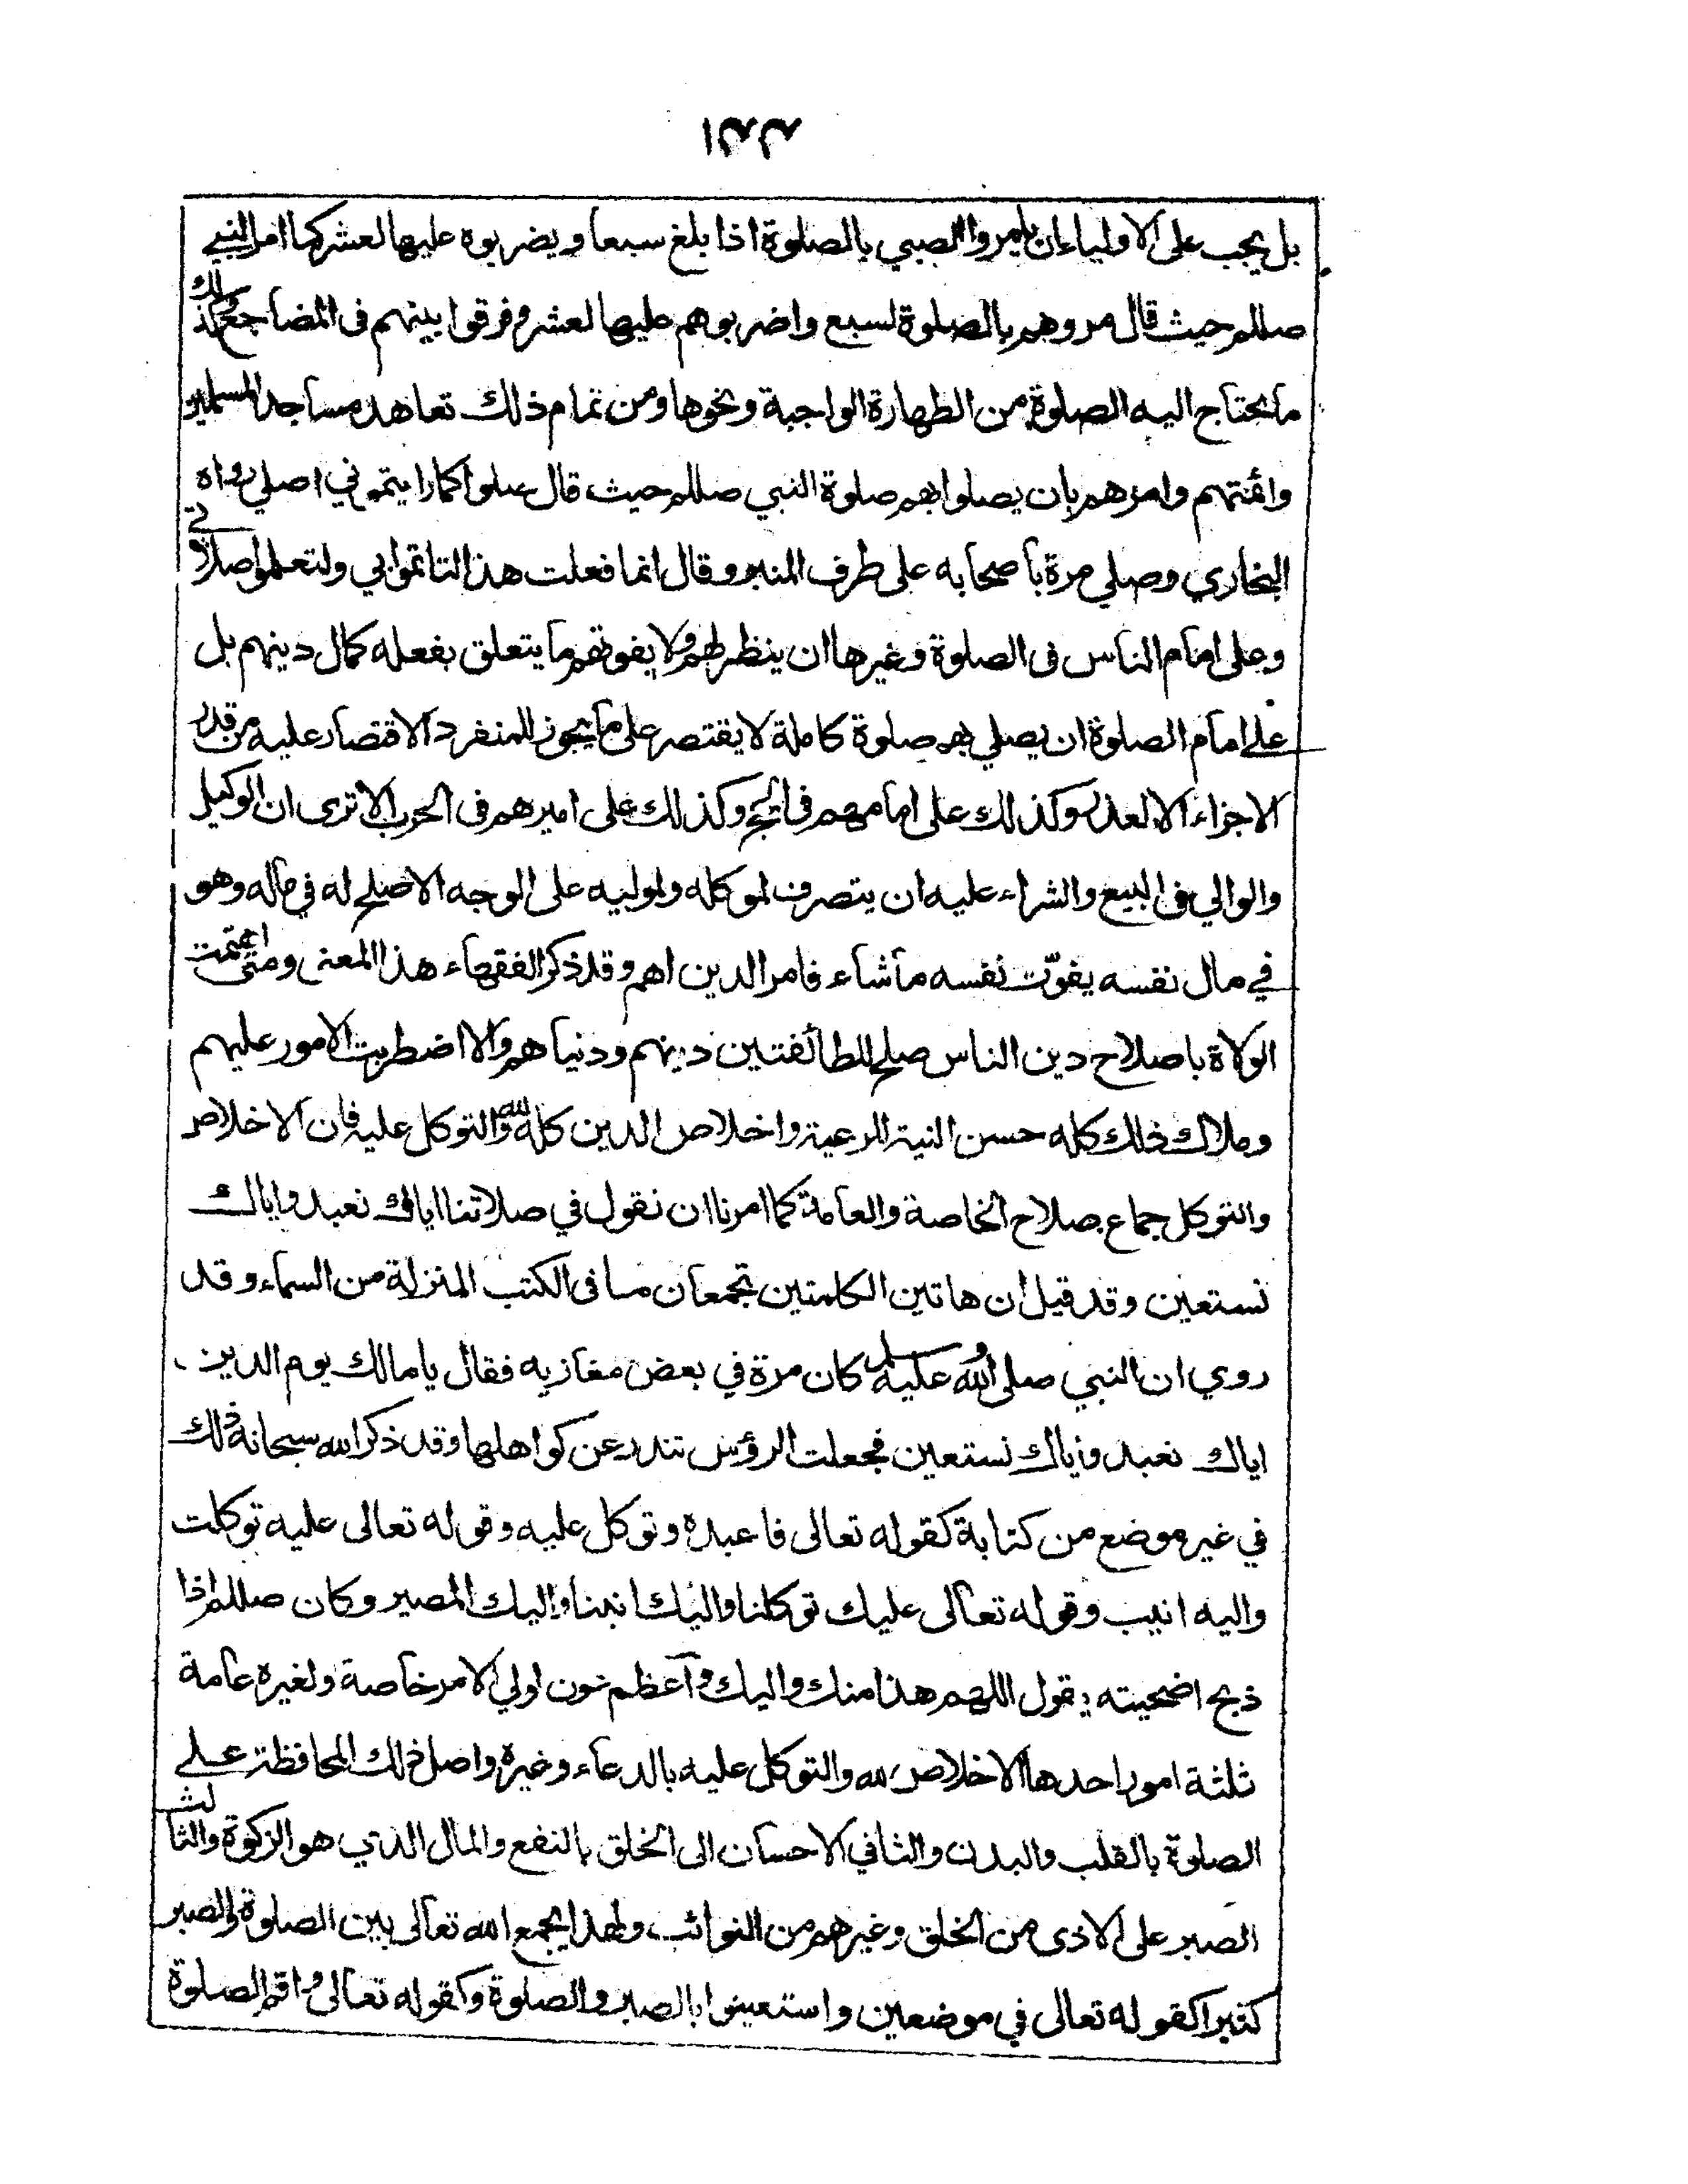 بل يجب على الاولياء ان يامروا الصبي بالصلوة اذا بلغ سبعا ويضربوه عليها لعشر كما امر النبي
صللم حيث قال مروهم بالصلوة لسبع واضربوهم عليها لعشر وفرقوا بينهم فى المضاجع وكذلك
ما يحتاج اليه الصلوة من الطهارة الواجبة ونحوها ومن تمام ذلك تعاهد مساجد المسلمين
وائمتهم وامرهم بان يصلوا بهم صلوة النبي صللم حيث قال صلوا كما رايتموني اصلي رواه
البخاري وصلي مرة باصحابه على طرف المنبر وقال انما فعلت هذا لتاتموا بي ولتعلموا صلاتي
وعلى امام الناس فى الصلوة وغيرها ان ينظر لهم ولا يفوتهم ما يتعلق بفعله كمال دينهم بل
على امام الصلوة ان يصلي بهم صلوة كاملة لا يقتصر على ما يجوز للمنفرد الاقتصار عليه من قدر
الاجزاء الا لعذر وكذلك على امامهم فى الحج وكذلك على اميرهم فى الحرب الا ترى ان الوكيل
والوالي فى البيع والشراء عليه ان يتصرف لموكله ولموليه على الوجه الاصلح له في ماله وهو
في مال نفسه يفوّت نفسه ما شاء فامر الدين اهم وقد ذكر الفقهاء هذا المعنى ومتى اهتمت
الولاة باصلاح دين الناس صلح للطائفتين دينهم ودنياهم والا اضطربت الامور عليهم
وملاك ذلك كله حسن النية للرعية واخلاص الدين كله لله والتوكل عليه فان الاخلاص
والتوكل جماع صلاح الخاصة والعامة كما امرنا ان نقول في صلاتنا اياك نعبد واياك
نستعين وقد قيل ان هاتين الكلمتين تجمعان ما فى الكتب المنزلة من السماء وقد
روي ان النبي صلى الله عليه وسلم كان مرة في بعض مغازيه فقال يا مالك يوم الدين
اياك نعبد واياك نستعين فجعلت الرؤس تندر عن كواهلها وقد ذكر الله سبحانه ذلك
في غير موضع من كتابة كقوله تعالى فاعبده وتوكل عليه وقوله تعالى عليه توكلت
واليه انيب وقوله تعالى عليك توكلنا واليك انبنا واليك المصير وكان صللم اذا
ذبح اضحيته يقول اللهم هذا منك واليك واعظم عون اولي الامر خاصة ولغيره عامة
ثلثة امور احدها الاخلاص لله والتوكل عليه بالدعاء وغيره واصل ذلك المحافظة على
الصلوة بالقلب والبدن والثاني الاحسان الى الخلق بالنفع والمال الذي هو الزكوة والثالث
الصبر على الاذى من الخلق وغيرهم من النوائب ولهذا يجمع الله تعالى بين الصلوة والصبر
كثيرا كقوله تعالى في موضعين واستعينوا بالصبر والصلوة وكقوله تعالى واقم الصلوة